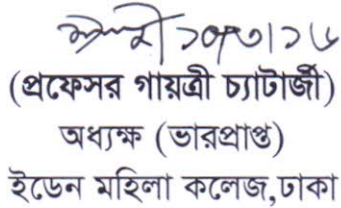 (প্রফেসর গায়ত্রী চ্যাটার্জী)
অধ্যক্ষ (ভারপ্রাপ্ত)
ইডেন মহিলা কলেজ,ঢাকা